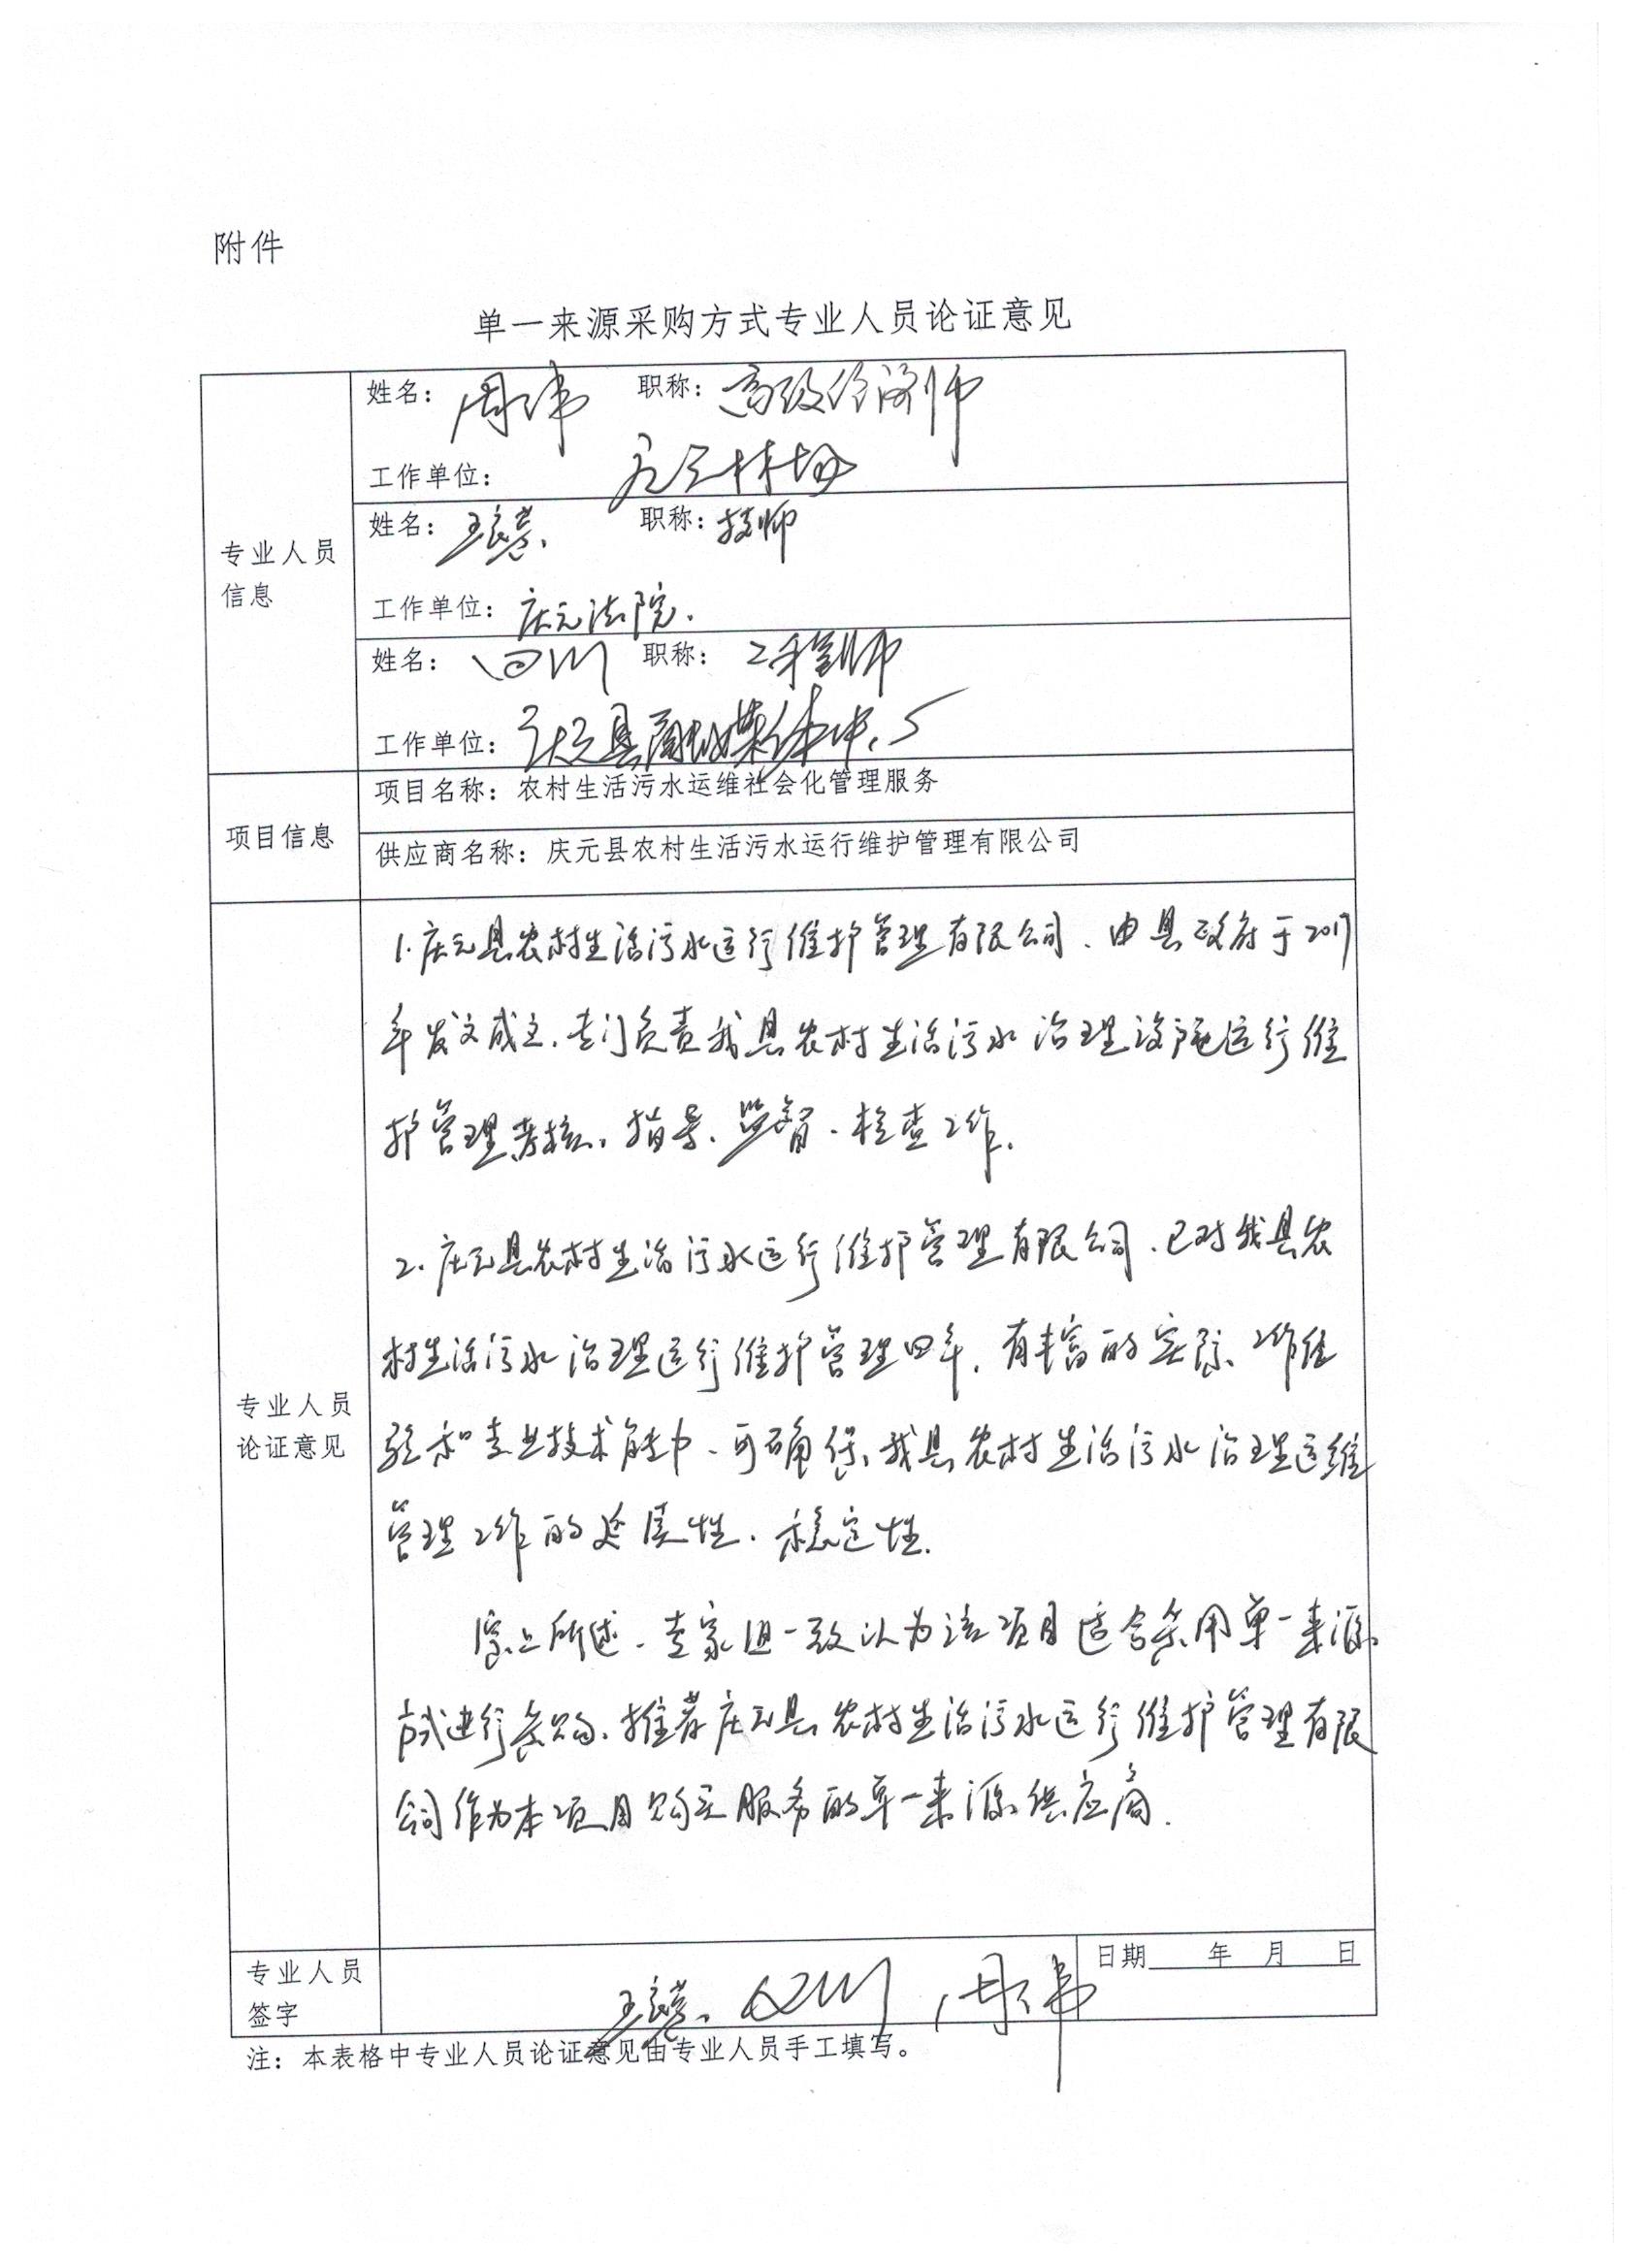 附件
单一来源采购方式专业人员论证意见
姓名：周伟 职称：高级经济师
工作单位：庆元林场
专业人员
信息
姓名：王良慧 职称：技师
工作单位：庆元法院.
姓名： 职称：工程师
工作单位：庆元县融媒体中心
项目信息
项目名称：农村生活污水运维社会化管理服务
供应商名称：庆元县农村生活污水运行维护管理有限公司
1.庆元县农村生活污水运行维护管理有限公司、由县政府于2017
年发文成立.专门负责我县农村生活污水治理设施运行维
护管理考核、指导、监督、检查工作.
2.庆元县农村生活污水运行维护管理有限公司、已对我县农
村生活污水治理运行维护管理四年.有丰富的实际工作经
验和专业技术能力、可确保我县农村生活污水治理运维
管理工作的延展性、稳定性.
专业人员
论证意见
综上所述、专家组一致认为该项目适合采用单一来源
方式进行采购、推荐庆元县农村生活污水运行维护管理有限
公司作为本项目购买服务的单一来源供应商.
专业人员
签字
王良慧 周伟
日期 年 月 日
注：本表格中专业人员论证意见由专业人员手工填写。